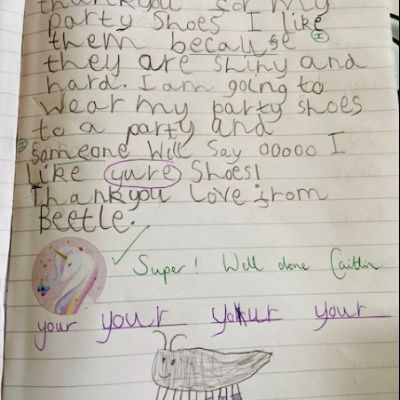 thankyou for my
party shoes I like
them because
they are shiny and
hard. I am going to
wear my party shoes
to a party and
Someone Will Say ooooo I
like yure Shoes!
Thankyou Love from
Beetle.
Super! Well done Caitlin
your your your your